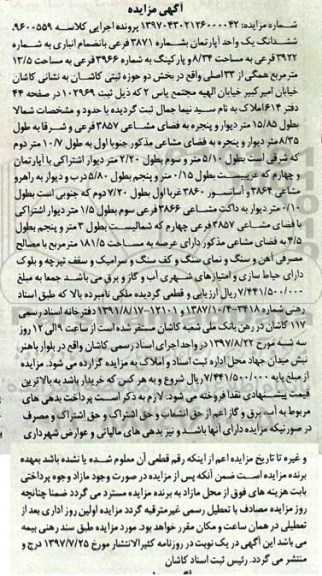 آگهی مزایده
شماره مزایده: ۱۳۹۷۰۴۳۰۲۱۲۶۰۰۰۰۴۲ پرونده اجرایی کلاسه ۹۶۰۰۵۵۹،
ششدانگ یک واحد آپارتمان بشماره ۳۸۷۱ فرعی بانضمام انباری به شماره
۳۹۲۲ فرعی به مساحت ۸/۳۴ و پارکینگ به شماره ۳۹۶۶ فرعی به مساحت ۱۳/۵
مترمربع همگی از ۳۳ اصلی واقع در بخش دو حوزه ثبتی کاشان به نشانی کاشان
خیابان امیرکبیر خیابان الهیه مجتمع یاس ۲ که ذیل ثبت ۱۰۲۹۶۹ در صفحه ۴۴
دفتر ۶۱۴ املاک به نام سید نیما جمال ثبت گردیده با حدود و مشخصات شمالا
بطول ۱۵/۸۵ متر دیوار و پنجره به فضای مشاعی ۳۸۵۷ فرعی و شرقا به طول
۸/۳۵ متر دیوار و پنجره به فضای مشاعی مذکور جنوبا اول به طول ۱۰/۷ متر دوم
که شرقی است بطول ۵/۱۰ متر و سوم بطول ۲/۲۰ متر دیوار اشتراکی با آپارتمان
و چهارم که غربیست بطول ۰/۱۵ متر و پنجم بطول ۵/۸۰ درب و دیوار به راهرو
مشاعی ۳۸۶۴ و آسانسور ۳۸۶۰ غربا اول بطول ۷/۲۰ دوم که جنوبی است بطول
۰/۱۰ متر دیوار به داکت مشاعی ۳۸۶۶ فرعی سوم بطول ۱/۵ متر دیوار اشتراکی
با فضای مشاعی ۳۸۵۷ فرعی چهارم که شمالیست بطول ۳ متر و پنجم بطول
۴/۵ به فضای مشاعی مذکور دارای عرصه به مساحت ۱۸۱/۵ مترمربع با مصالح
مصرفی آهن و سنگ و نمای سنگ و کف سنگ و سرامیک و سقف تیرچه و بلوک
دارای حیاط سازی و امتیازهای شهری آب و گاز و برق می باشد جمعا به مبلغ
۷/۴۴۱/۵۰۰/۰۰۰ ریال ارزیابی و قطعی گردیده ملکی نامبرده بالا که طبق اسناد
رهنی شماره ۳۴۱۸-۱۳۸۷/۱۰/۴ و ۱۲۱۰۱-۱۳۹۱/۸/۱۷ دفترخانه اسناد رسمی
۱۱۷ کاشان در رهن بانک ملی شعبه کاشان مستقر شده است از ساعت ۹ الی ۱۲ روز
سه شنبه مورخ ۱۳۹۷/۸/۲۲ در واحد اجرای اسناد رسمی کاشان واقع در بلوار باهنر
نبش میدان جهاد محل اداره ثبت اسناد و املاک به مزایده گزارده می شود. مزایده
از مبلغ پایه ۷/۴۴۱/۵۰۰/۰۰۰ ریال شروع و به هر کس که خریدار باشد به بالاترین
قیمت پیشنهادی نقدا فروخته می شود- لازم به ذکر است پرداخت بدهی های
مربوطه به آب، برق و گاز اعم از حق انشعاب و حق اشتراک و حق اشتراک و مصرف
در صورتیکه مورد مزایده دارای آنها باشد و نیز بدهی های مالیاتی و عوارض شهرداری
و غیره تا تاریخ مزایده اعم از اینکه رقم قطعی آن معلوم شده یا نشده باشد بعهده
برنده مزایده است ضمن آنکه پس از مزایده در صورت وجود مازاد وجوه پرداختی
بابت هزینه های فوق از محل مازاد به برنده مزایده مسترد می گردد ضمنا چنانچه
روز مزایده مصادف با تعطیل رسمی غیرمترقبه گردد مزایده اولین روز اداری بعد از
تعطیلی در همان ساعت و مکان مقرر خواهد بود. مورد مزایده طبق سند رهنی بیمه
می باشد این آگهی در یک نوبت در روزنامه کثیرالانتشار مورخ ۱۳۹۷/۷/۲۵ درج و
منتشر می گردد. رئیس ثبت اسناد کاشان